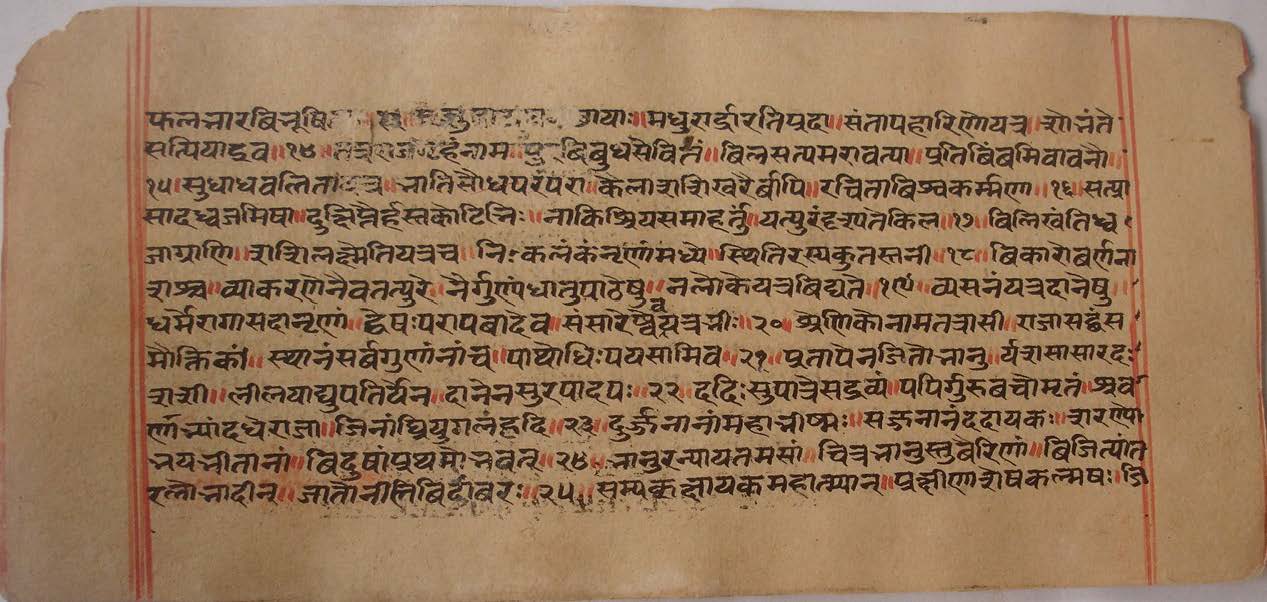 फलभारविभूषि छायाः॥मधुरार्द्रारतिप्रदा॥संतापहारिण्योयत्र॥शोभंते
सत्प्रियाइव॥१४॥तत्रराजगृहंनाम॥पुरंविबुधसेवितं॥विलसत्यमरावत्या॥प्रतिबिंबमिवावनौ॥
१५॥सुधाधवलिता॥भातिसौधपरंपरा॥कैलाशशिखरैर्वापि॥रचिताविश्वकर्म्मणा॥१६॥सत्प्रा
सादध्वजमिषा॥दुद्भिन्नैर्हस्तकोटिभिः॥नाकिश्रियसमाहर्तुं॥यत्पुरंदृश्यतेकिल॥१७॥विलिखतिध्व
जाग्राणि॥शशिलक्ष्मैतियत्रच॥निःकलंकंनृणांमध्ये॥स्थितिरस्यकुतस्तनी॥१८॥विकारोवर्णना
शश्च॥व्याकरणेनैवतत्पुरे॥नैर्गुण्यंधातुपाठेषु॥नलोकेयत्रविद्यते॥१९॥व्यसनंयत्रदानेषु॥
धर्मेरागःसदानृणां॥द्वेषःपरापवादेव॥संसारेष्वेवयत्रभीः॥२०॥श्रेणिकोनामतत्रासी॥राजासद्वंस
मौक्तिकां॥स्थानंसर्वगुणांनांच॥पाथोधिःपयसामिव॥२१॥प्रतापेनजितोभानु॥र्यशसासारद
शशी॥लीलयाद्युपतिर्येन॥दानेनसुरपादपः॥२२॥ददिःसुपात्रेसद्द्रव्यं॥पपिर्गुरुवचोमृतं॥श्रव
र्णाभ्यांदधेराजा॥जिनांघ्रियुगलंहृदि॥२३॥दुर्ज्जनानांमहाभीष्मः॥सज्जनानंददायकः॥शरण्यो
भयभीतानां॥विदुषांप्रथमोभवत्॥२४॥भानुरन्यायतमसां॥चित्रभानुस्तुवैरिणां॥विजित्यांत
रलोभादीन्॥जातोनीतिविदांवरः॥२५॥सम्यक्क्षायकमहात्म्यान्॥प्रक्षीणाशेषकल्मषः॥जि